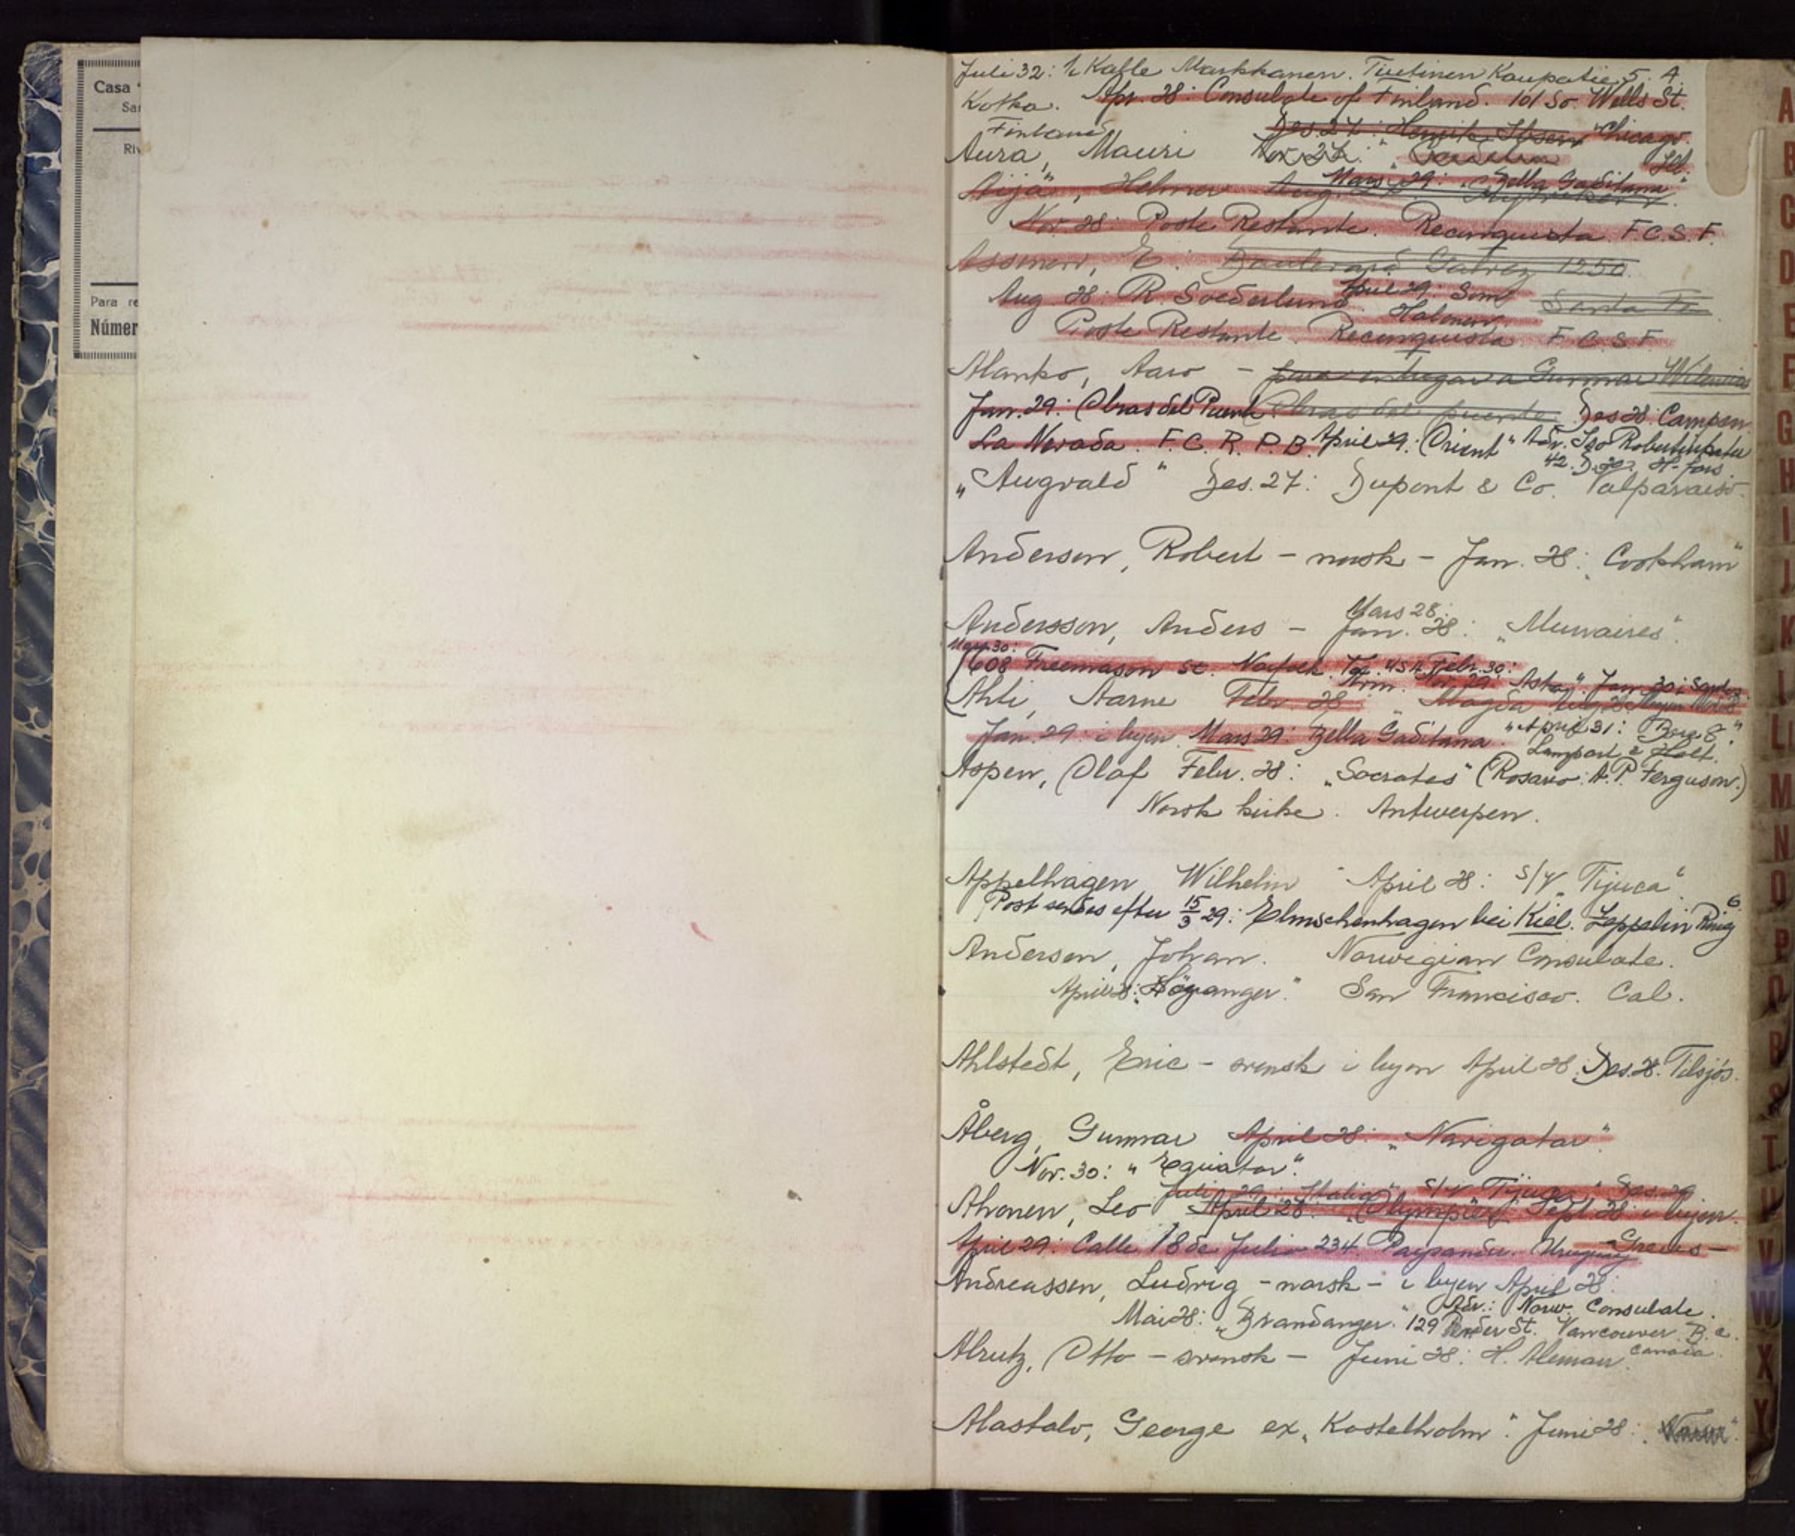 Casa
Para re
Númer
Juli 32: % Kalle Markkanen. Tiutinen Kaupatie 5. A.
Kotka. Apr. 28: Consulate of Finland. 101 So. Wells St.
Finland Des. 27: Henrik Ibsen Chicago.
Aura, Mauri Nov. 27: Ill.
Äijä, Helmer Aug. Mars 29: "Bella Gaditana"
Nov. 28: Poste Restante. Reconquista F.C.S.F.
Assmen, E. Boulevard Galvez 1250
Aug 28: R. Soederlund April 29: Som Santa Fe
Halonen
Poste Restante. Reconquista F.C.S.F.
Alanko, Aaro - para entregar a Gunnar Wilenius
Jan. 29: Obras del Puente Obras del puerto Des 28: Campen
La Nevada. F.C.R.P.B. April 29: "Orient" Adr.
42. H-fors.
"Augvald" Des. 27: Dupont & Co. Valparaiso.
Anderson, Robert - norsk - Jan. 28: "Cookham"
Mars 28:
Andersson, Anders - Jan. 28: "Munaires".
Mars 30:
608 Freemason St. Norfolk. Va. USA. Febr. 30:
Nov. 29 "Asta". Jan 30: Santos
Ahti, Aarne Febr 28 "Magda
Jan. 29: i byen. Mars 29: Bella Gaditana. "April 31: Borg 8."
Lamport & Holt.
Aspen, Olaf Febr. 28: "Socrates" (Rosario: A.P. Ferguson.)
Norsk kirke. Antwerpen.
Appelhagen Wilhelm April 28: S/Y "Tijuca".
Post sendes efter 15/3 29: Elmschenhagen bei Kiel. Zeppelin Ring 6
Andersen, Johan. Norwegian Consulate.
April 28: "Höyanger." San Francisco. Cal.
Ahlstedt, Eric - svensk i byen April 28. Des. 28. Tilsjös.
Åberg, Gunnar April 28: "Navigator".
Nov. 30: "Equator".
Juli 29: "Italia" S/Y Tijuca, Des. 29
Ahonen, Leo April 28: "Olympier" Sept. 28 i byen.
April 29: Calle 18 de Julio 234 Paysandu. Uruguay
Andreassen, Ludvig - norsk - i byen April 28:
Adr.: Norw. Consulate.
Mai 28: "Brandanger." 129 Pender St. Vancouver B.C.
Canada.
Alrutz, Otto - svensk - Juni 28: H. Aleman.
Alastalo, George ex "Kastelholm". Juni 28:
A
B
C
D
E
F
G
H
I
J
K
L
Ll
M
N
O
P
Q
R
S
T
U
V
W
X
Y